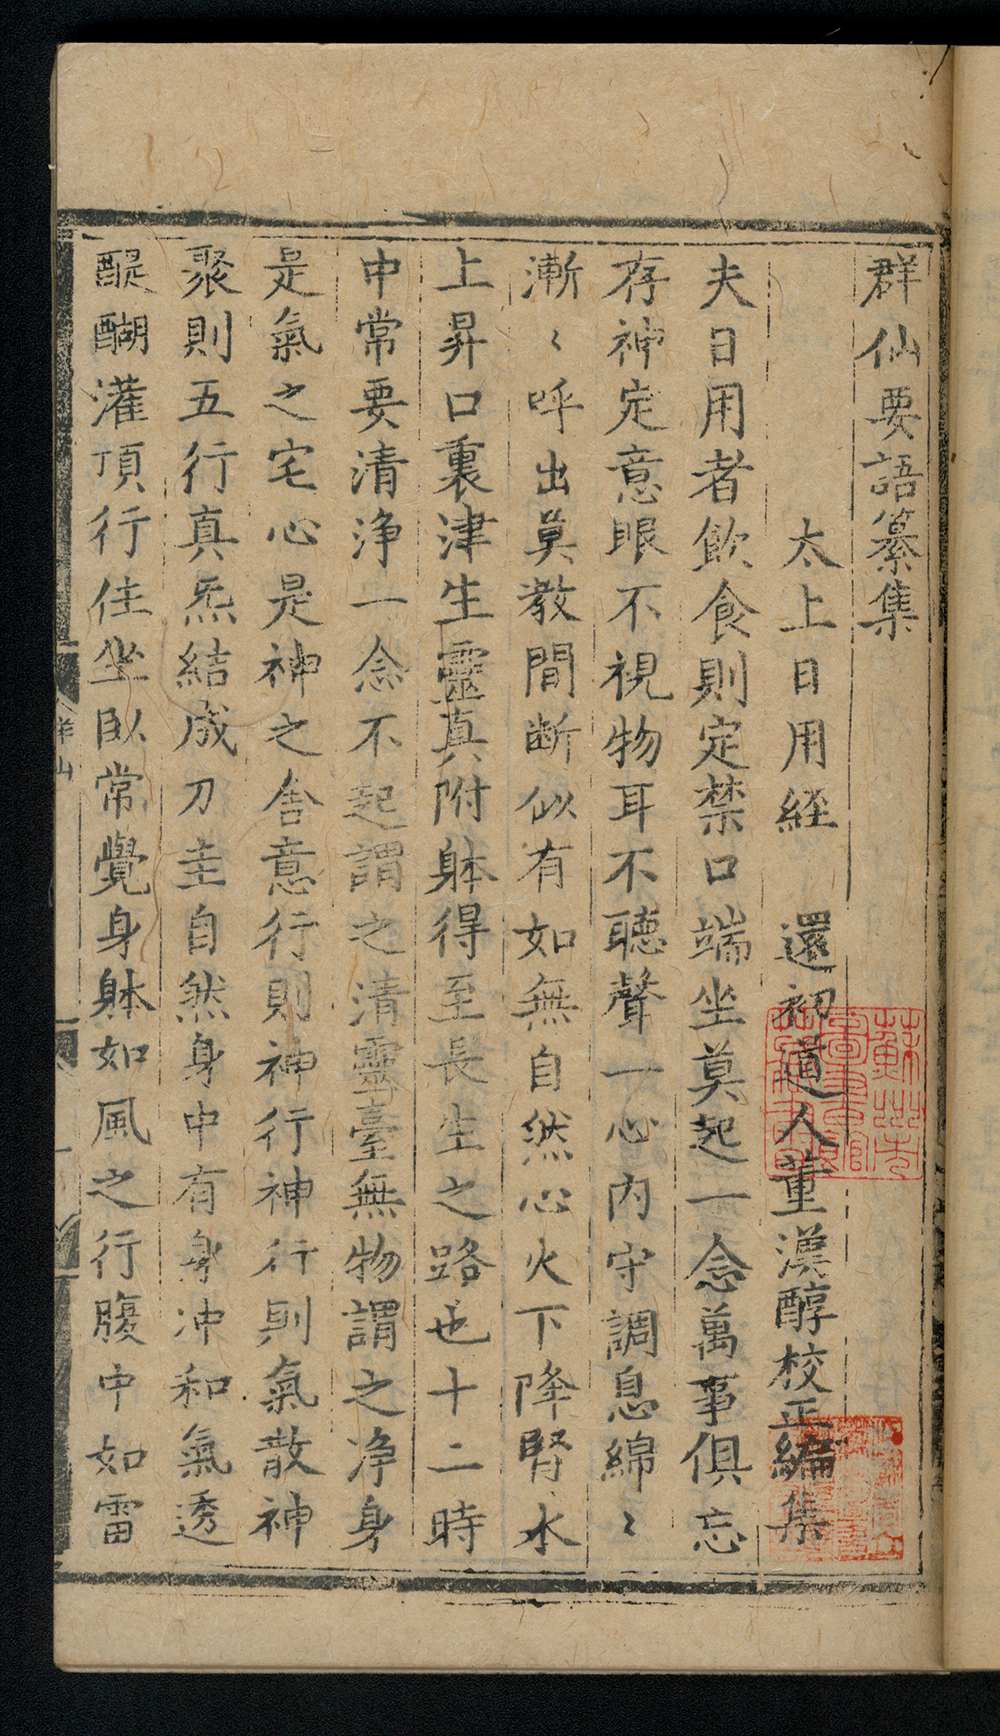 群仙要語纂集
太上日用経　還初道人董漢醇校正編集
夫日用者飲食則定禁口端坐莫起一念萬事俱忘
存神定意眼不視物耳不聽聲一心內守調息綿〻
漸〻呼出莫教間断似有如無自然心火下降腎水
上昇口裏津生靈真附躰得至長生之路也十二時
中常要清净一念不起謂之清靈臺無物謂之净身
是氣之宅心是神之舎意行則神行神行則氣散神
聚則五行真炁結成刀圭自然身中有身冲和氣透
醍醐灌頂行住坐臥常覺身躰如風之行腹中如雷